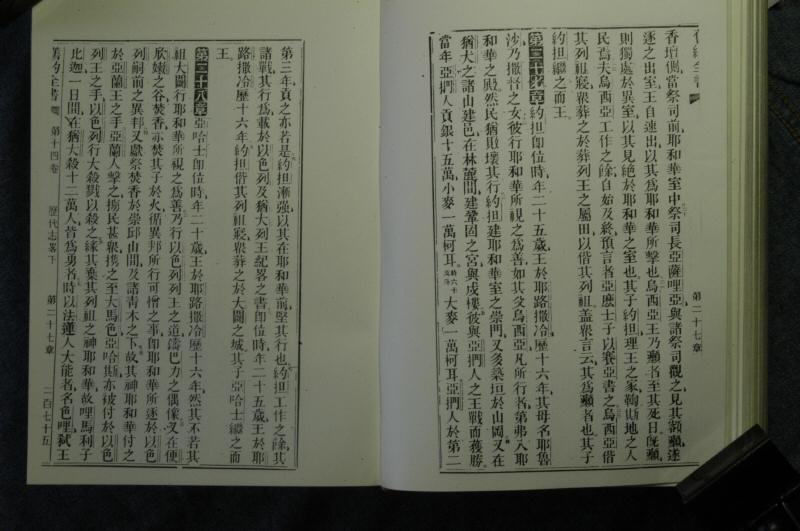 舊約全書 第二十七章
香壇側、當祭司前、耶和華室中、祭司長亞薩哩亞與諸祭司觀之、見其額癩、遂
逐之出室、王自速出、以其爲耶和華所擊也、烏西亞王乃癩者、至其死日、旣癩、
則獨處於異室、以其見絕於耶和華之室也、其子約担理王之家、鞫斷地之人
民焉、夫烏西亞工作之餘、自始及終、預言者亞麽士子以賽亞書之、烏西亞偕
其列祖寢、衆葬之於葬列王之屬田、以偕其列祖、盖衆言云、其爲癩者也、其子
約担繼之而王、
第二十七章 約担卽位時、年二十五歲、王於耶路撒冷歷十六年、其母名耶魯
沙、乃撒督之女、彼行耶和華所視之爲善、如其父烏西亞凡所行者、第弗入耶
和華之殿、然民猶敗壞其行、約担建耶和華室之崇門、又多築垣於山岡、又在
猶大之諸山建邑、在林麓間、建鞏固之宮與戍樓、彼與亞捫人之王戰而獲勝、
當年亞捫人貢銀十五萬、小麥一萬柯耳、大麥一萬柯耳、亞捫人於第二
第三年貢之亦若是、約担漸强、以其在耶和華前、堅其行也、約担工作之餘、其
諸戰、其行、爲載於以色列及猶大列王紀畧之書、卽位時年二十五歲、王於耶
路撒冷歷十六年、約担偕其列祖寢、衆葬之於大闢之城、其子亞哈士繼之而
王、
第二十八章 亞哈士卽位時、年二十歲、王於耶路撒冷歷十六年、然其不若其
祖大闢行耶和華所視之爲善、乃行以色列列王之道、鑄巴力之偶像、又在便
欣嫩之谷焚香、亦焚其子於火、循異邦所行可憎之事、卽耶和華所逐於以色
列嗣前之異邦、又獻祭焚香於崇邱山間、及諸靑木之下、故其神耶和華付之
於亞蘭王之手、亞蘭人擊之、擄民甚衆、攜之至大馬色、亞哈斯亦被付於以色
列王之手、以色列行大殺戮以殺之、緣其棄其列祖之神耶和華、故哩馬利子
比迦、一日間在猶大殺十二萬人、皆爲勇者、時以法蓮人大能者、名色哩、弑王
舊約全書 第十四卷 歷代志畧下 第二十七章 二百七十五